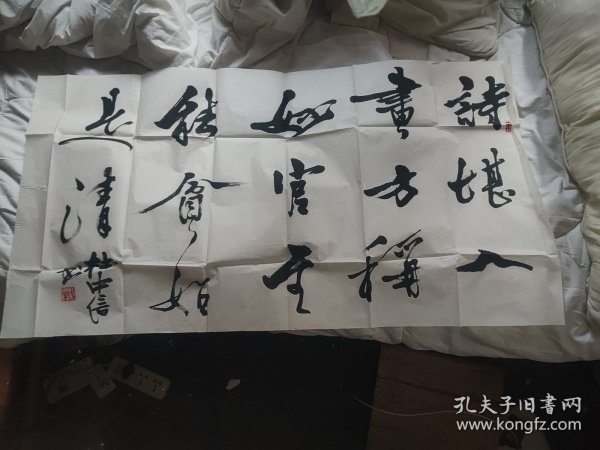 詩堪入
畫方稱
妙官至
能貧始
是清
杜中信
孔夫子旧書网
www.kongfz.com